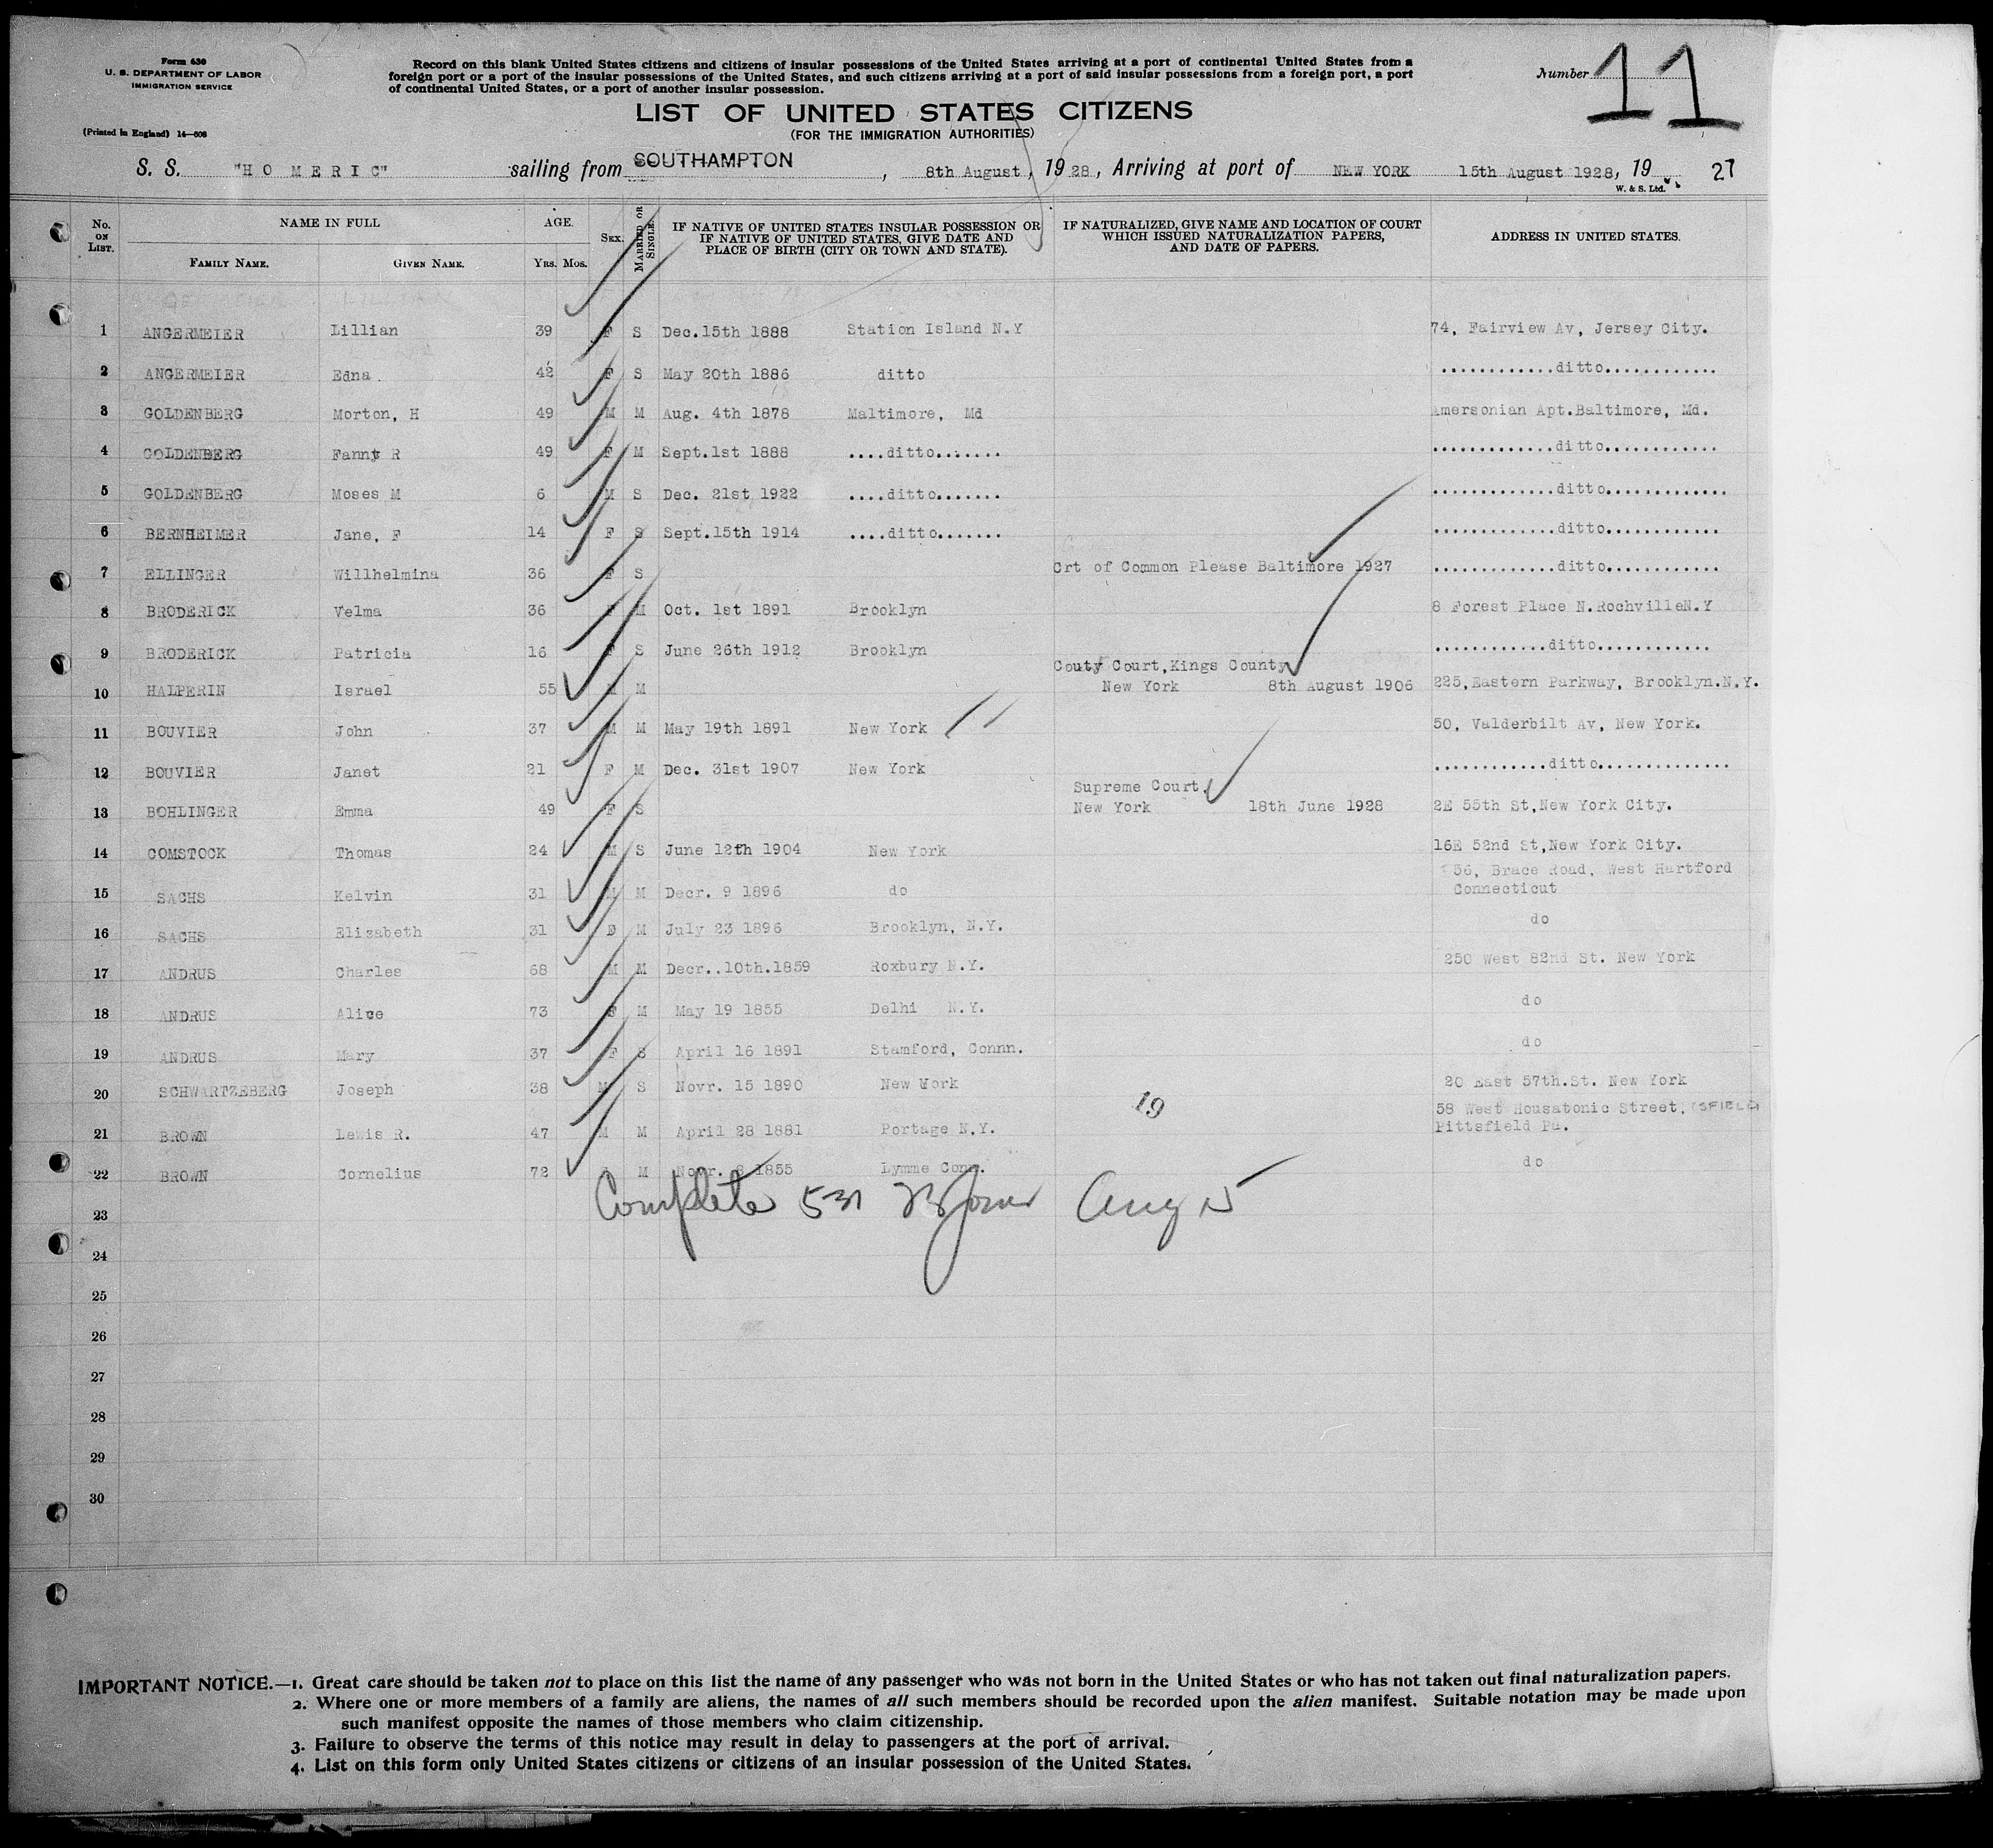 Form 630
U. S. DEPARTMENT OF LABOR
IMMIGRATION SERVICE
(Printed in England) 14—608
Record on this blank United States citizens and citizens of insular possessions of the United States arriving at a port of continental United States from a
foreign port or a port of the insular possessions of the United States, and such citizens arriving at a port of said insular possessions from a foreign port, a port
of continental United States, or a port of another insular possession.
Number 11
LIST OF UNITED STATES CITIZENS
(FOR THE IMMIGRATION AUTHORITIES)
S. S. "HO MERIC" sailing from SOUTHAMPTON, 8th August, 1928, Arriving at port of NEW YORK 15th August 1928, 19 27
W. & S. Ltd.
No. ON LIST. NAME IN FULL AGE. SEX. MARRIED OR SINGLE. IF NATIVE OF UNITED STATES INSULAR POSSESSION OR IF NATIVE OF UNITED STATES, GIVE DATE AND PLACE OF BIRTH (CITY OR TOWN AND STATE). IF NATURALIZED, GIVE NAME AND LOCATION OF COURT WHICH ISSUED NATURALIZATION PAPERS, AND DATE OF PAPERS. ADDRESS IN UNITED STATES.
FAMILY NAME. GIVEN NAME. YRS. MOS.
1 ANGERMEIER Lillian 39 F S Dec.15th 1888 Station Island N.Y 74, Fairview Av, Jersey City.
2 ANGERMEIER Edna. 42 F S May 20th 1886 ditto ............ditto............
3 GOLDENBERG Morton, H 49 M M Aug. 4th 1878 Maltimore, Md Amersonian Apt.Baltimore, Md.
4 GOLDENBERG Fanny R 49 F M Sept.1st 1888 ....ditto....... .............ditto............
5 GOLDENBERG Moses M 6 M S Dec. 21st 1922 ....ditto....... .............ditto.............
6 BERNHEIMER Jane, F 14 F S Sept.15th 1914 ....ditto....... .............ditto............
7 ELLINGER Willhelmina 36 F S Crt of Common Please Baltimore 1927 .............ditto............
8 BRODERICK Velma 36 F M Oct. 1st 1891 Brooklyn 8 Forest Place N.RochvilleN.Y
9 BRODERICK Patricia 16 F S June 26th 1912 Brooklyn ............ditto............
Couty Court,Kings County
10 HALPERIN Israel 55 M M New York 8th August 1906 225,Eastern Parkway, Brooklyn.N.Y.
11 BOUVIER John 37 M M May 19th 1891 New York 50, Valderbilt Av, New York.
12 BOUVIER Janet 21 F M Dec. 31st 1907 New York ............ditto..............
Supreme Court,
13 BOHLINGER Emma 49 F S New York 18th June 1928 2E 55th St,New York City.
14 COMSTOCK Thomas 24 M S June 12th 1904 New York 16E 52nd St,New York City.
56, Brace Road, West Hartford
15 SACHS Kelvin 31 M M Decr. 9 1896 do Connecticut
16 SACHS Elizabeth 31 M July 23 1896 Brooklyn, N.Y. do
17 ANDRUS Charles 68 M M Decr..10th.1859 Roxbury N.Y. 250 West 82nd St. New York
18 ANDRUS Alice 73 F M May 19 1855 Delhi N.Y. do
19 ANDRUS Mary 37 F S April 16 1891 Stamford, Connn. do
20 SCHWARTZEBERG Joseph 38 M S Novr. 15 1890 New Work 20 East 57th.St. New York
19 58 West Housatonic Street,
21 BROWN Lewis R. 47 M M April 28 1881 Portage N.Y. Pittsfield Pa.
22 BROWN Cornelius 72 M Novr. 8 1855 Lymme Conn. do
Complete 531 Aug 15
23
24
25
26
27
28
29
30
IMPORTANT NOTICE.—1. Great care should be taken not to place on this list the name of any passenger who was not born in the United States or who has not taken out final naturalization papers.
2. Where one or more members of a family are aliens, the names of all such members should be recorded upon the alien manifest. Suitable notation may be made upon
such manifest opposite the names of those members who claim citizenship.
3. Failure to observe the terms of this notice may result in delay to passengers at the port of arrival.
4. List on this form only United States citizens or citizens of an insular possession of the United States.